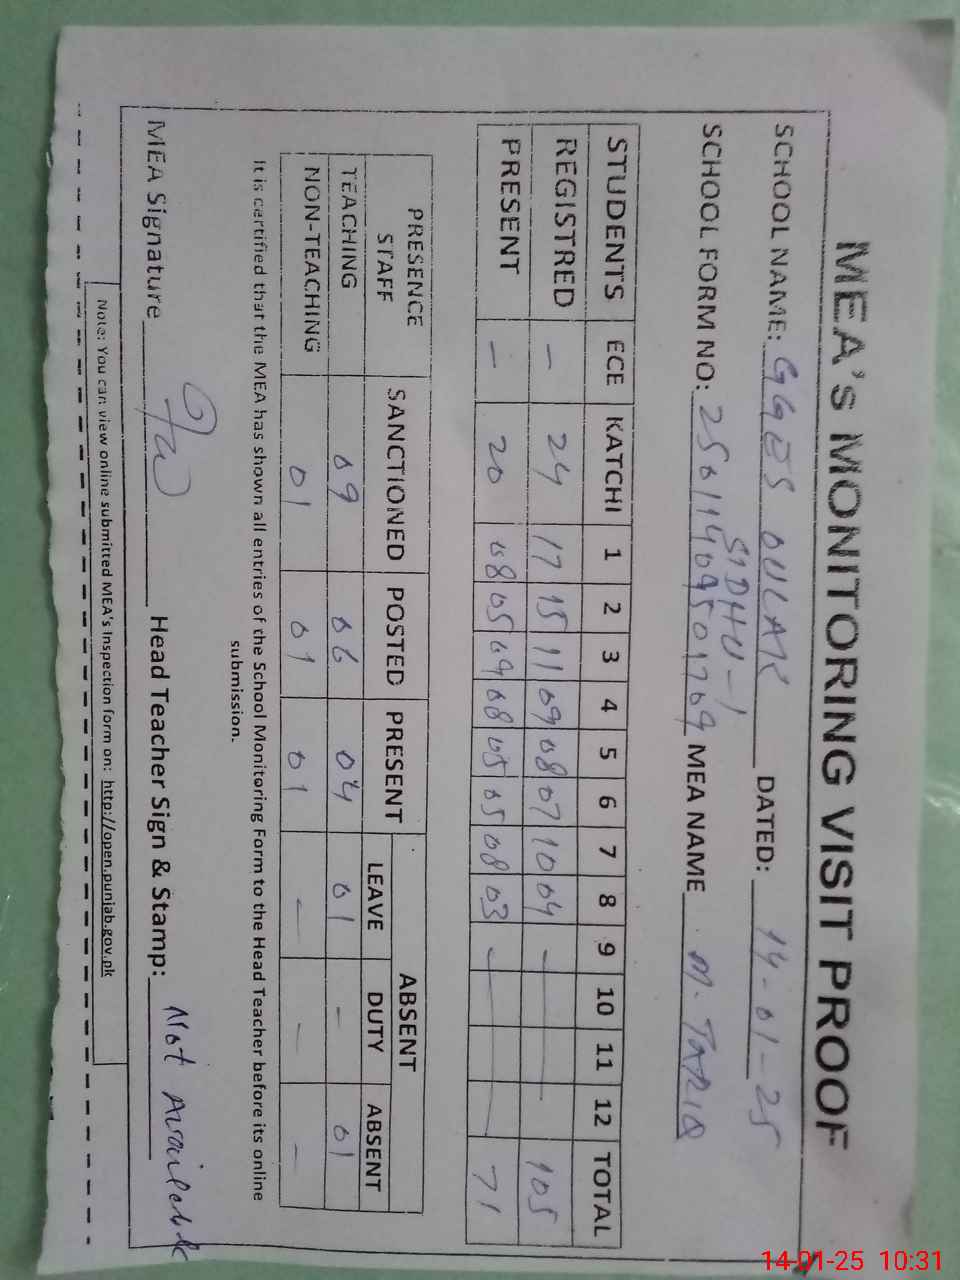 MEA's MONITORING VISIT PROOF
SCHOOL NAME: GGES DULAR SIDHU-1 DATED: 14-01-25
SCHOOL FORM NO: MEA NAME M. TARIQ
STUDENTS ECE KATCHI 1 2 3 4 5 6 7 8 9 10 11 12 TOTAL
REGISTRED - 24 17 15 11 09 08 07 10 04 - 105
PRESENT - 20 08 05 09 08 05 05 08 03 - 71
PRESENCE STAFF SANCTIONED POSTED PRESENT ABSENT
LEAVE DUTY ABSENT
TEACHING 09 06 04 01 - 01
NON-TEACHING 01 01 01 - - -
It is certified that the MEA has shown all entries of the School Monitoring Form to the Head Teacher before its online
submission.
MEA Signature Head Teacher Sign & Stamp: Not Available
Note: You can view online submitted MEA's Inspection form on: http://open.punjab.gov.pk
14-01-25 10:31